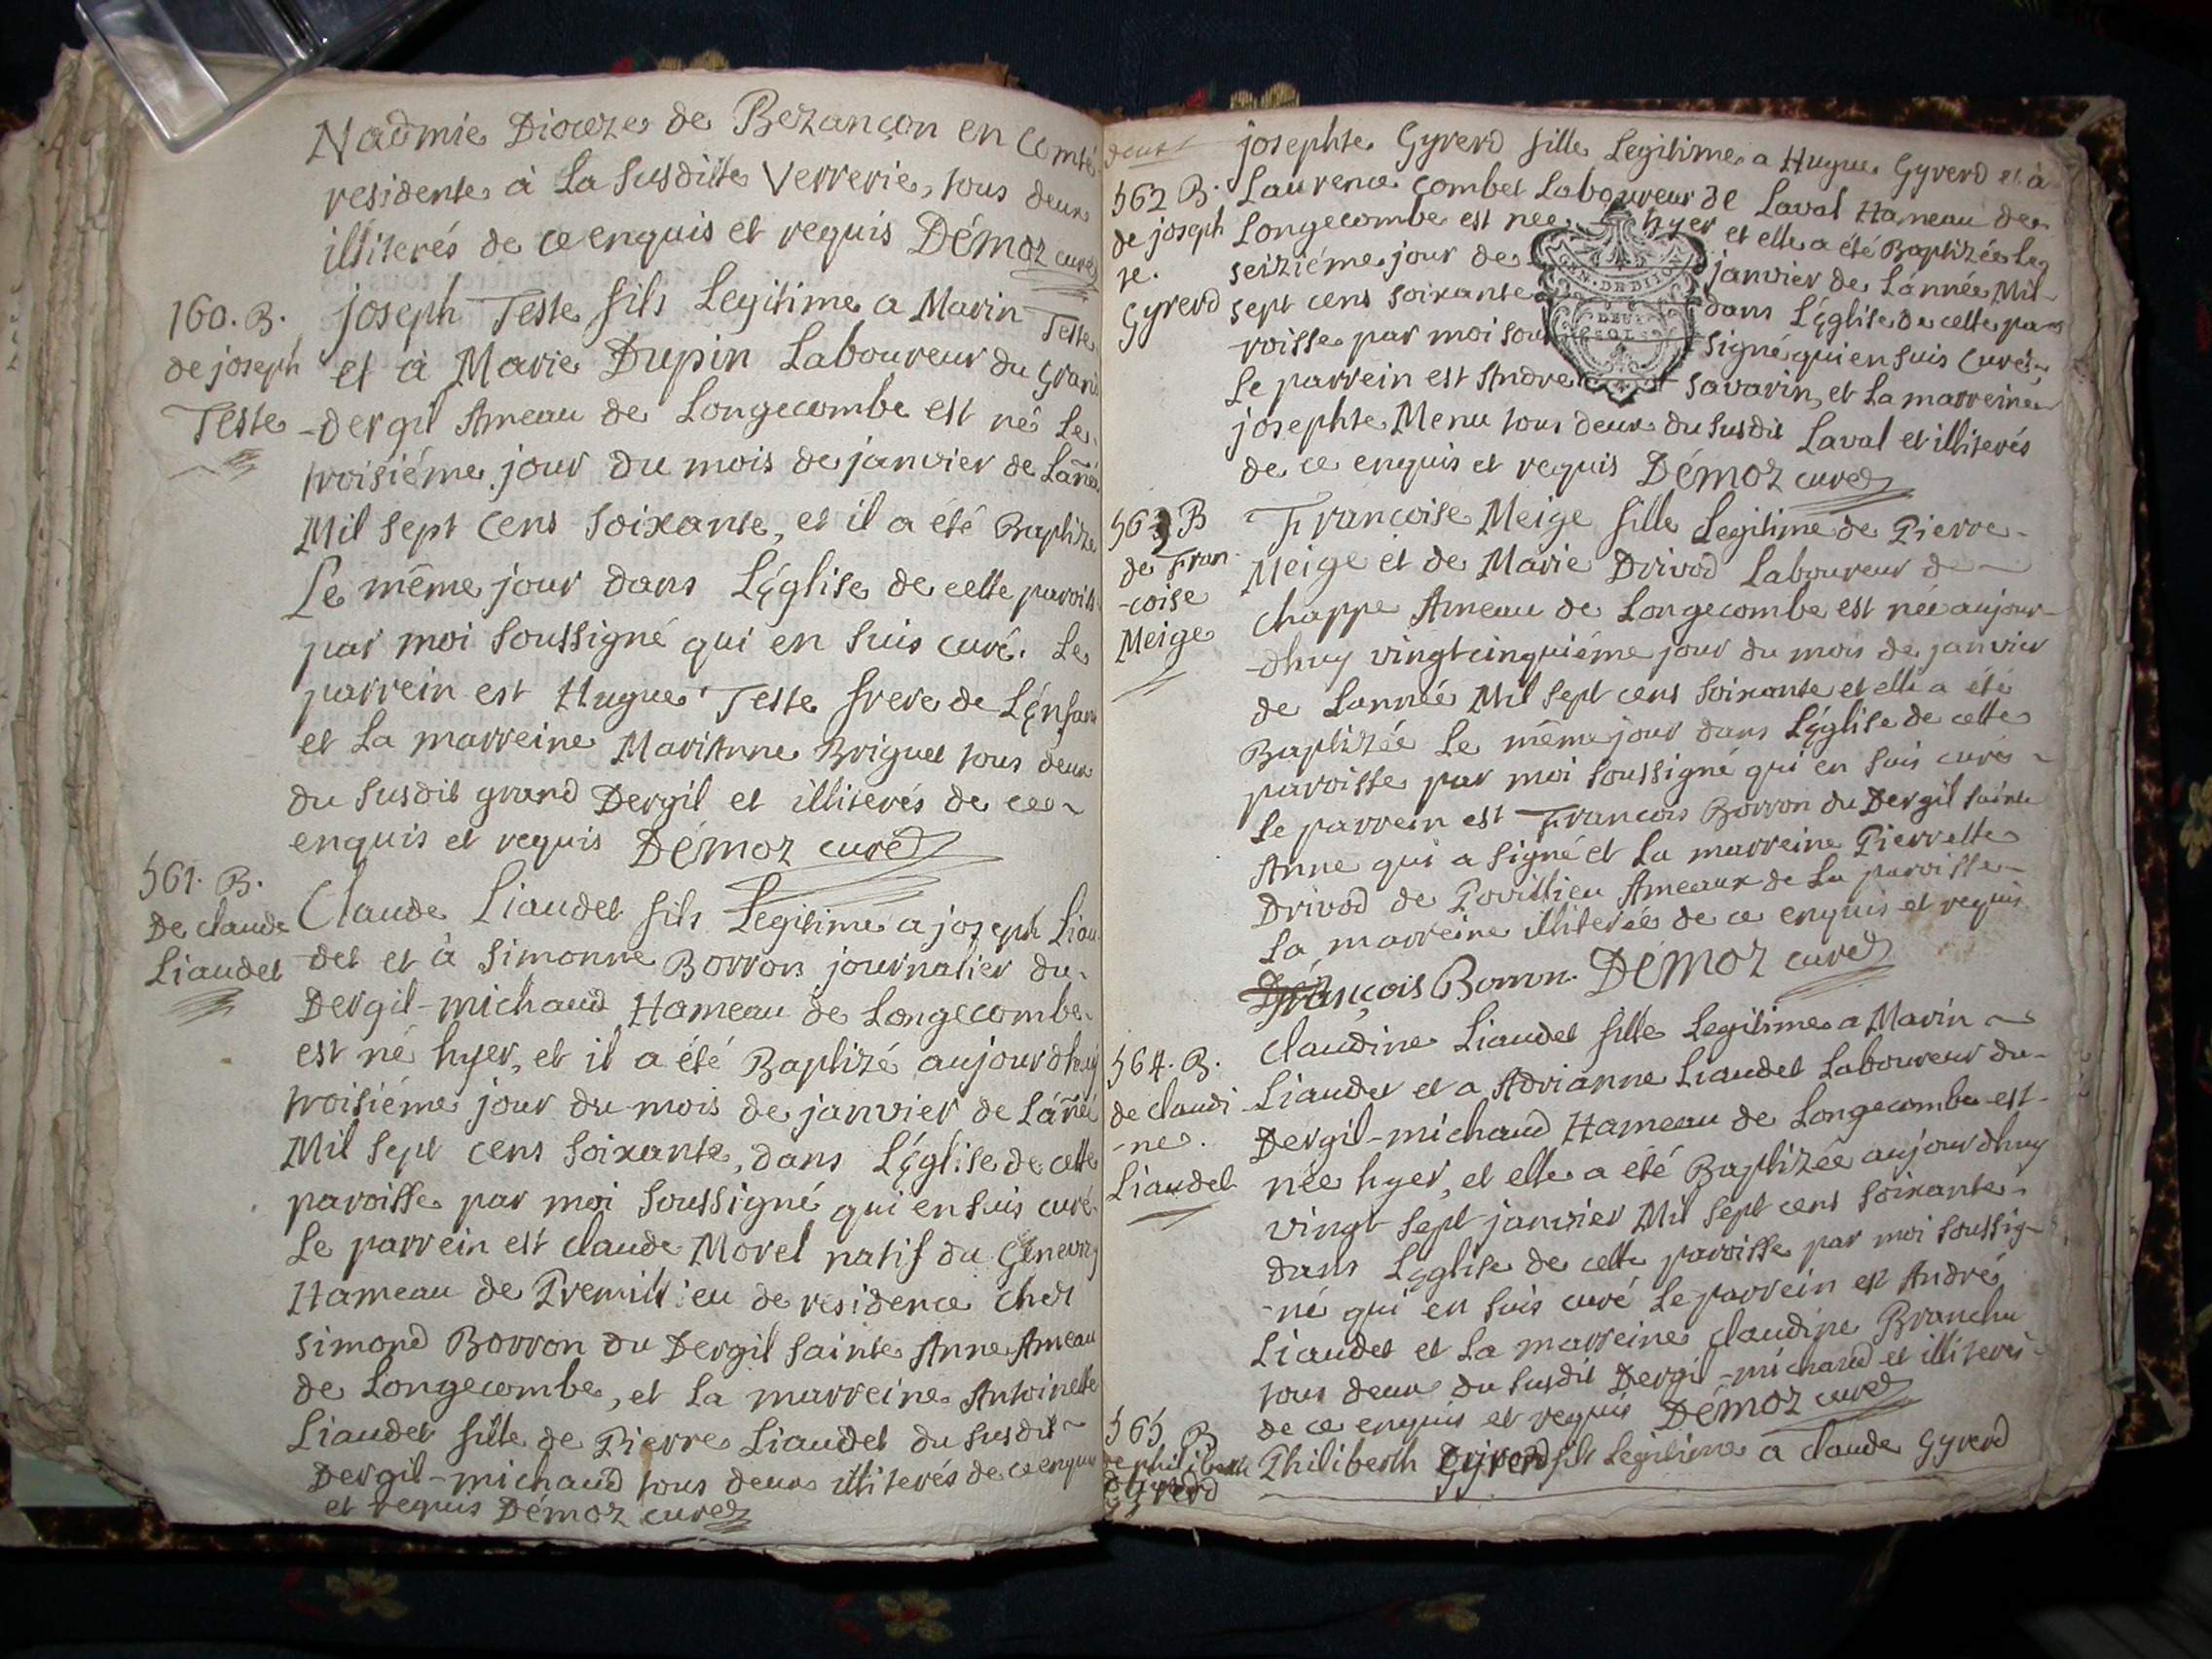 Naòmie Dioceze de Bezançon en Comté
residente à La susditte Verrerie, tous deux
illiterés de ce enquis et requis Démoz curé
160. B.
de joseph
Teste
joseph Teste fils Legitime a Marin Teste
et à Marie Dupin Laboureur du Grand
-dergil Ameau de Longecombe est né Le
troisiéme jour du mois de janvier de Lañée
Mil sept Cens soixante, et il a été Baptizé
Le même jour dans L'église de cette paroiss
par moi soussigné qui en suis curé. Le
parrein est Hugue Teste frere de L'enfant
et La marreine Mari Anne Briguet tous deux
du susdit grand Dergil et illiterés de ce
enquis et requis Démoz curé
561. B.
De claude
Liaudet
Claude Liaudet fils Legitime a joseph Liau
det et à Simonne Borron journalier du
Dergil-michaud Hameau de Longecombe
est né hyer, et il a été Baptizé aujourdhuy
troisiéme jour du mois de janvier de Láñée
Mil sept cens soixante, dans L'église de cette
paroisse par moi soussigné qui en suis curé.
Le parrein est claude Morel natif du Genevey
Hameau de Premillieu de residence chez
simond Borron du Dergil sainte Anne Ameau
de Longecombe, et La marreine Antoinette
Liaudet fille de Pierre Liaudet du susdit
Dergil-michaud tous deux illiterés de ce enquis
et requis Démoz curé
562 B.
de joseph
te.
Gyrerd
josephte Gyrerd fille Legitime a Hugue Gyrerd et à
Laurence Combet Laboureur de Laval Hameau de
Longecombe est nee hyer et elle a été Baptizée Le
seiziéme jour de janvier de Lánnée Mil-
sept cens soixante dans L'église de cette pa
roisse par moi sous signé qui en suis Curé.
Le parrein est Andre Savarin, et La marreine
josephte Menu tous deux du susdit Laval et illiterés
de ce enquis et requis Démoz curé
GEN. DE DIJON
DEUX
SOLS
563 B
de Fran
-coise
Meige
Francoise Meige fille Legitime de Pierre
Meige et de Marie Drivod Laboureur de
chappe Ameau de Longecombe est née aujour-
-dhuy vingtcinquiéme jour du mois de janvier
de Lannée Mil sept cens soixante et elle a été
Baptizée Le même jour dans L'église de cette
paroisse par moi soussigné qui en suis curé
Le parrein est Francois Borron du Dergil sainte
Anne qui a signé et La marreine Pierrette
Drivod de Povillieu Ameaux de La paroisse
La marreine illiterée de ce enquis et requis
François Borron. Démoz curé
564. B.
de claudi
-ne.
Liaudet
Claudine Liaudet fille Legitime a Marin
Liaudet et a Adrianne Liaudet Laboureur du-
Dergil-michaud Hameau de Longecombe est-
née hyer, et elle a été Baptizée aujourdhuy
vingt sept janvier Mil sept cens soixante
dans L'église de cette paroisse par moi soussig-
-né qui en suis curé Le parrein est André
Liaudet et La marreine claudine Branchu
tous deux du susdit Dergil-michaud et illiterés
de ce enquis et requis Démoz curé
565 B
de philiberth
Gyrerd
Philiberth Gyrerd fils Legitime a claude Gyrerd